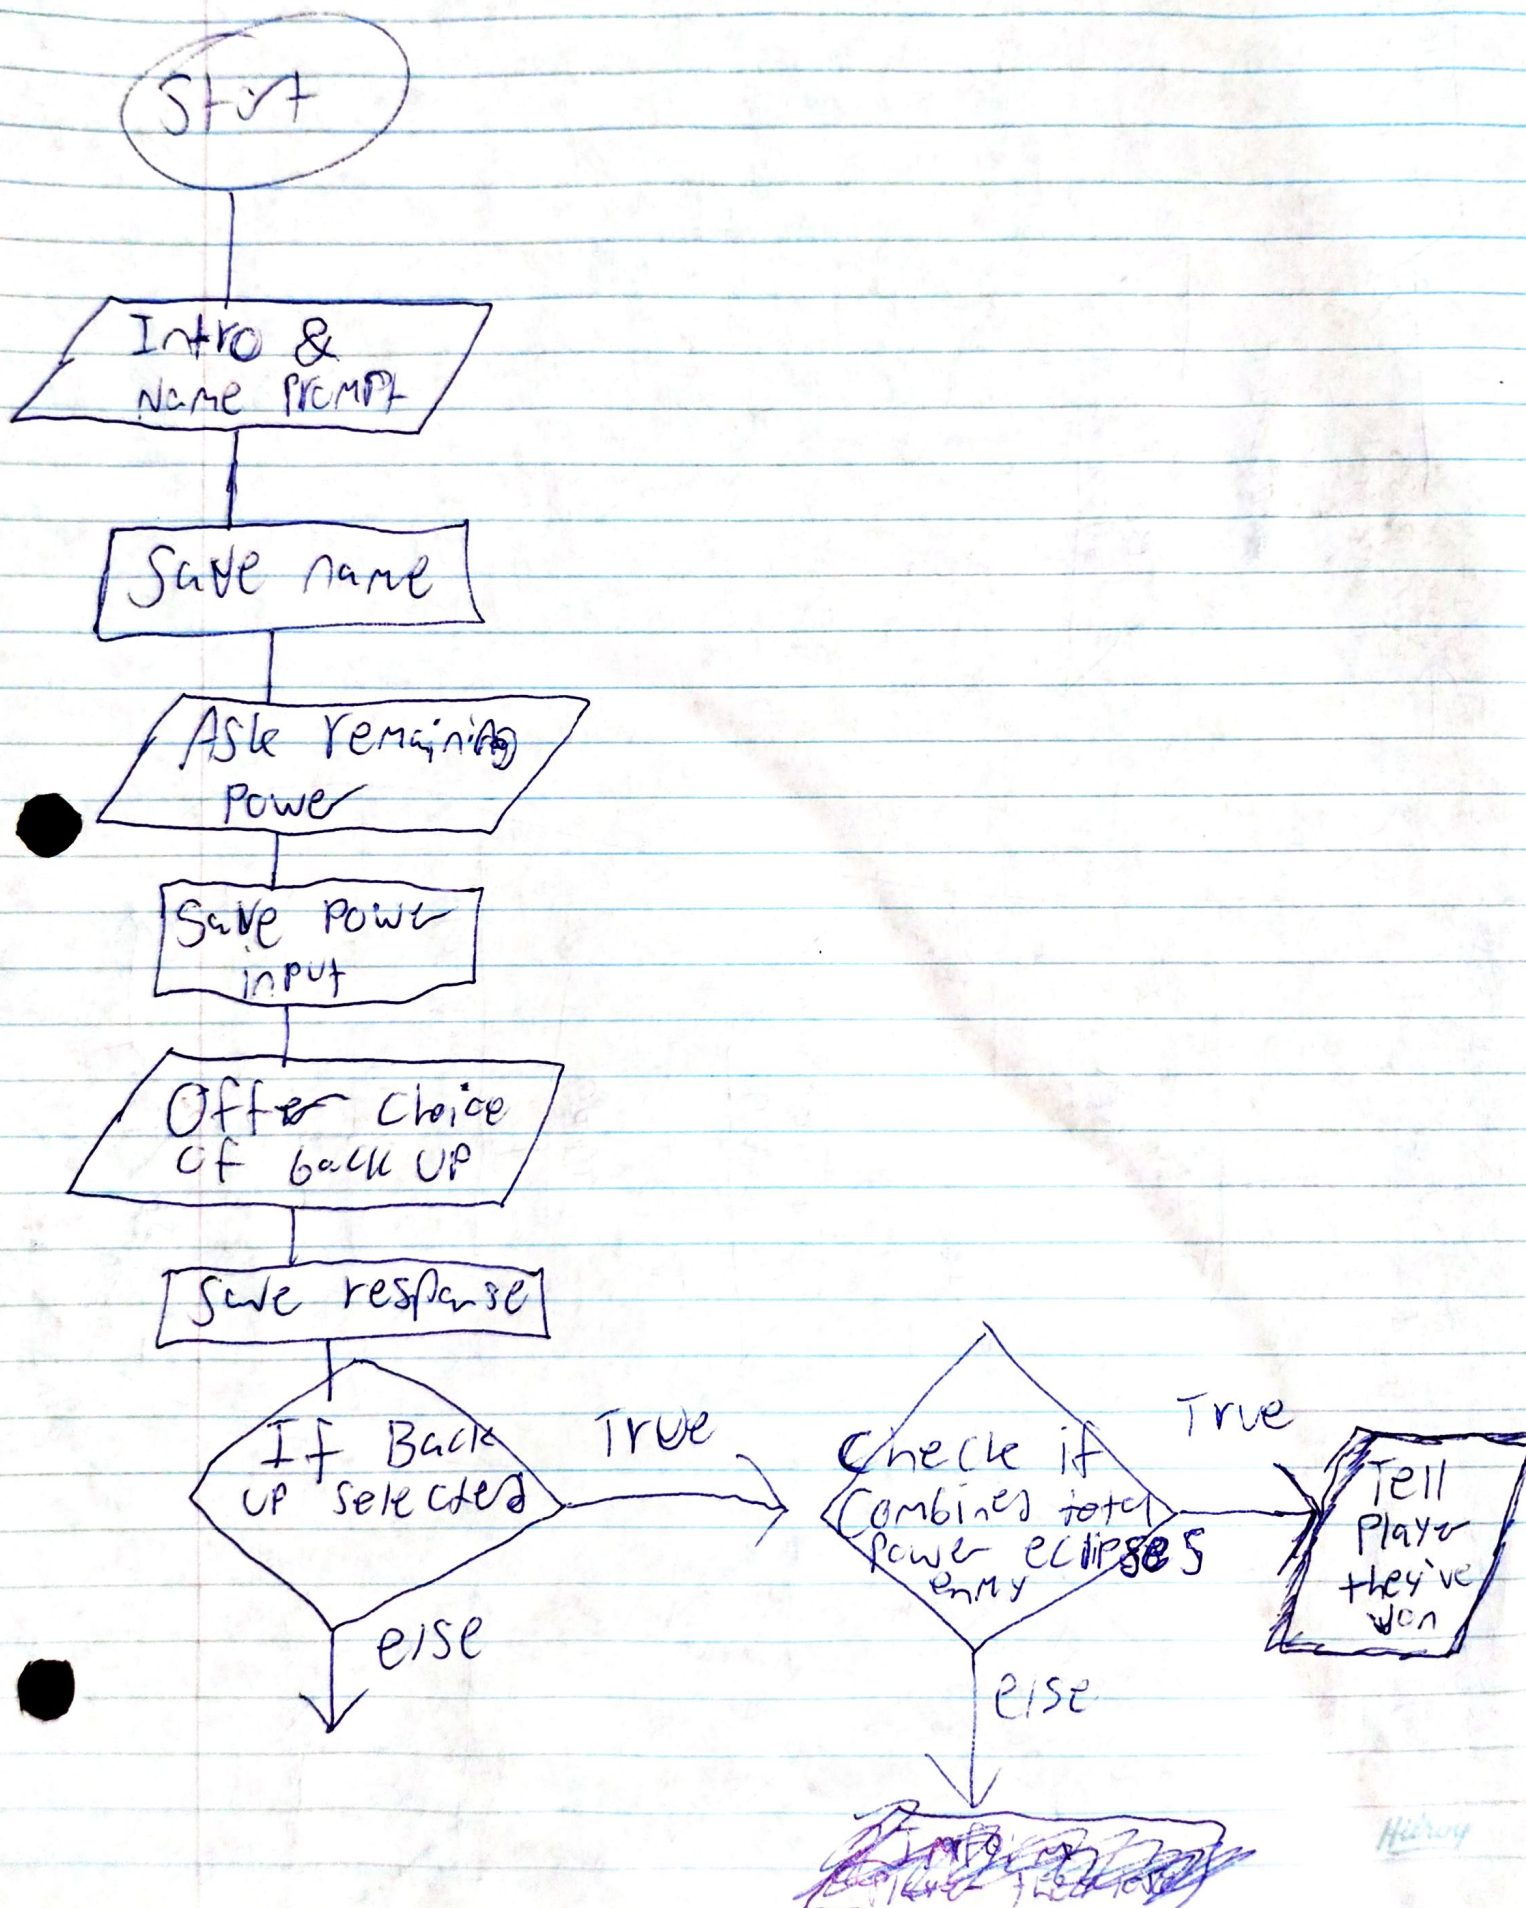 Start
Intro &
Name Prompt
Save name
Ask remaining
Power
Save Power
input
Offer choice
of back up
Save response
If Back
up selected
True
else
Check if
Combined total
Power eclipses
enmy
True
else
Tell
Player
they've
won
Hilroy